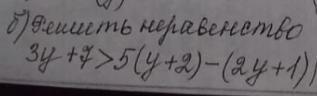 б) Решить неравенство
3y+7>5(y+2)-(2y+1)